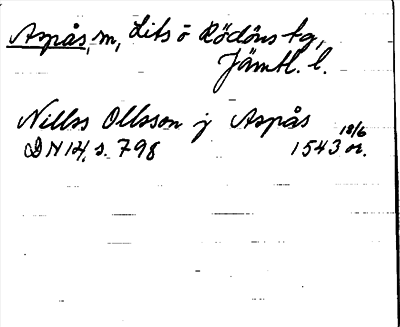 Aspås, sn, Lits o Rödöns tg,
Jämtl. l.
Nillss Ollsson j Aspås
DN 14, s. 798 1543 18/6 or.